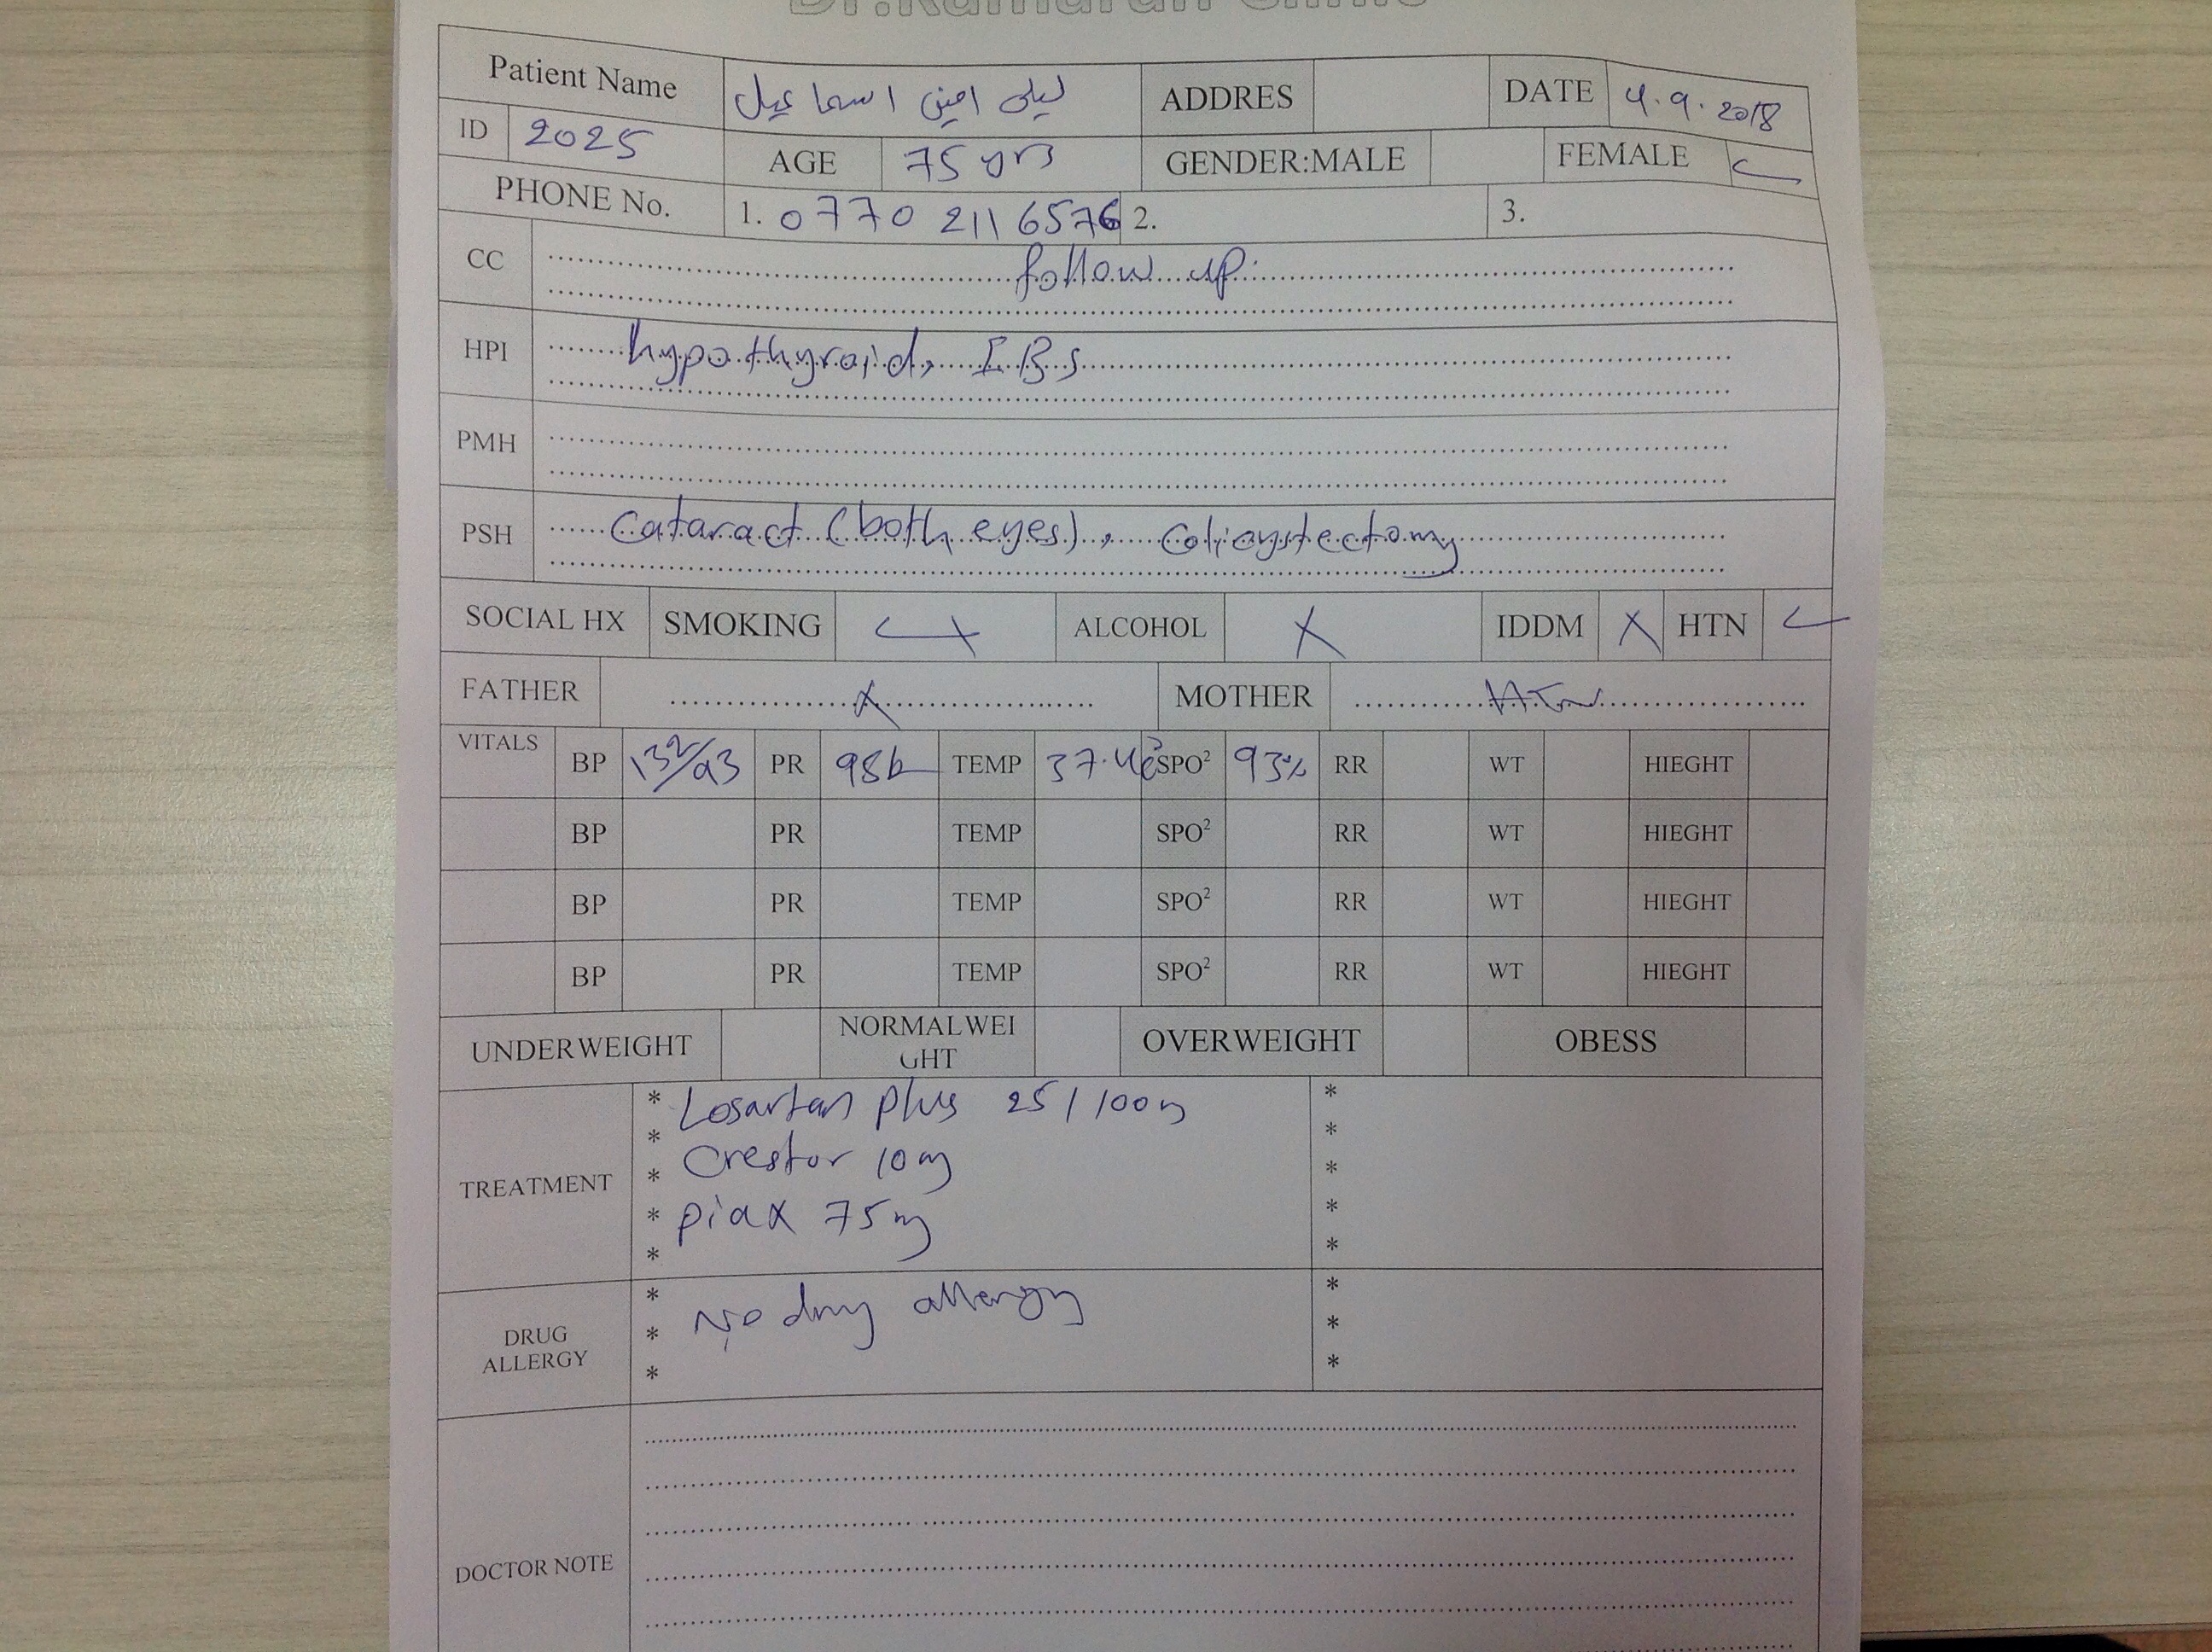 Dr.Kamaran Clinic
Patient Name ليلى امين اسماعيل ADDRES DATE 4.9.2018
ID 2025 AGE 75 yrs GENDER:MALE FEMALE
PHONE No. 1. 0770 211 6576 2. 3.
CC follow up
HPI hypothyroid, IBS
PMH
PSH cataract (both eyes), colicystectomy
SOCIAL HX SMOKING ALCOHOL X IDDM X HTN
FATHER X MOTHER HTN
VITALS BP 132/93 PR 98b TEMP 37.4c° SPO² 93% RR WT HIEGHT
BP PR TEMP SPO² RR WT HIEGHT
BP PR TEMP SPO² RR WT HIEGHT
BP PR TEMP SPO² RR WT HIEGHT
UNDERWEIGHT NORMALWEI
GHT OVERWEIGHT OBESS
TREATMENT
* Losartan plus 25/100m *
* Crestor 10m *
* piax 75m *
* *
* *
DRUG
ALLERGY
* No drug allergy *
* *
* *
DOCTOR NOTE